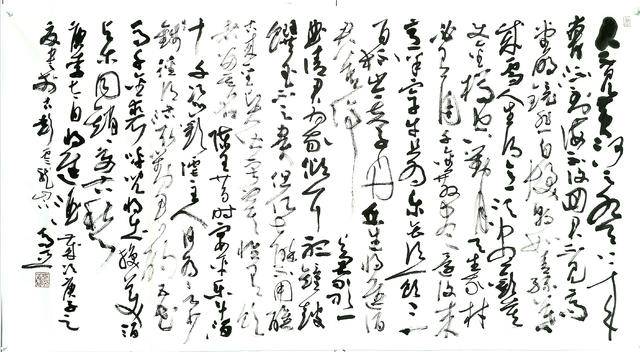 君不见黄河之水天上来
奔流到海不复回君不见高
堂明镜悲白发朝如青丝暮
成雪人生得意须尽欢莫
使金樽空对月天生我材
必有用千金散尽还复来
烹羊宰牛且为乐会须一饮三
百杯岑夫子丹丘生将进酒
君莫停与君歌一
曲请君为我倾耳听钟鼓
馔玉不足贵但愿长醉不用醒
古来圣贤皆寂寞惟有饮
者留其名陈王昔时宴平乐斗酒
十千恣欢谑主人何为言少
钱径须沽取对君酌五花
马千金裘呼儿将出换美酒
与尔同销万古愁
李白将进酒岁次庚子之
夏书于古彭云龙